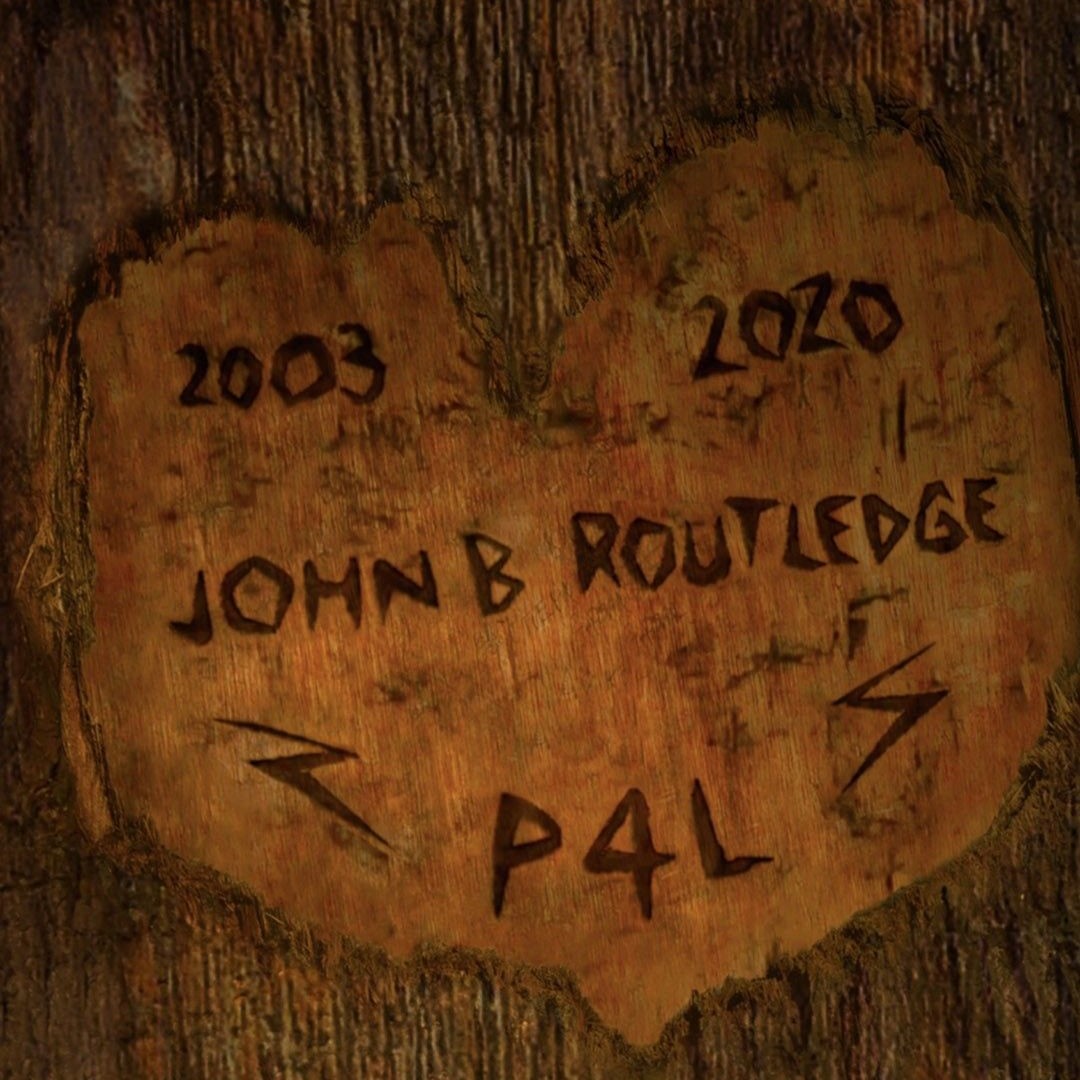 2003 2020
JOHN B ROUTLEDGE
P4L